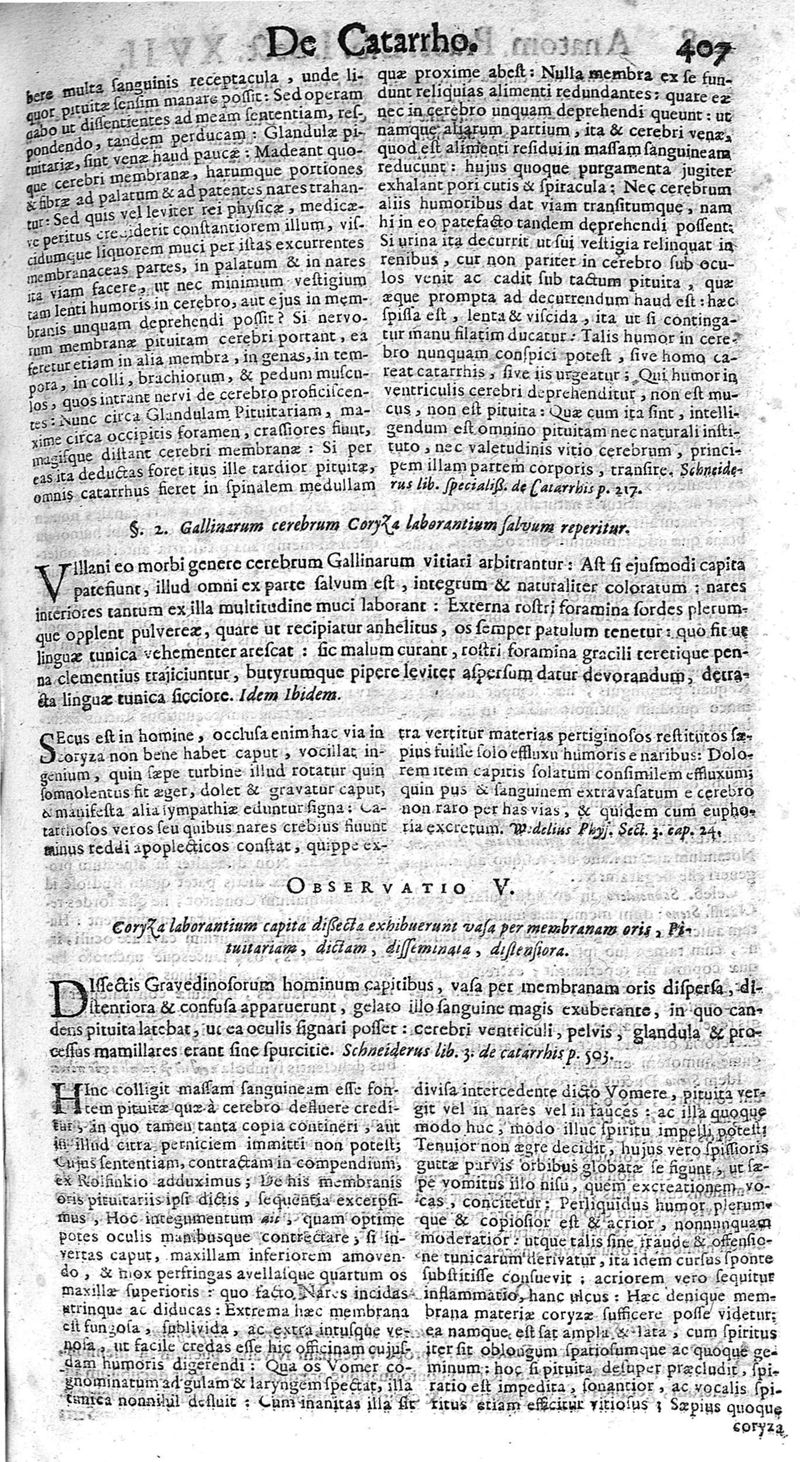 De Catarrho. 407
bere multa sanguinis receptacula, unde li-
quor pituitæ sensim manare possit: Sed operam
gabo ut dissentientes ad meam sententiam, res-
pondendo, tandem perducam: Glandulæ pi-
tuitariæ, sint venæ haud paucæ: Madeant quo-
que cerebri membranæ, harumque portiones
& fibræ ad palatum & ad patentes nares trahan-
tur: Sed quis vel leviter rei physicæ, medicæ-
ve peritus crediderit constantiorem illum, vis-
cidumque liquorem muci per istas excurrentes
membranaceas partes, in palatum & in nares
ita viam facere, ut nec minimum vestigium
tam lenti humoris in cerebro, aut ejus in mem-
branis unquam deprehendi possit? Si nervo-
rum membranæ pituitam cerebri portant, ea
feretur etiam in alia membra, in genas, in tem-
pora, in colli, brachiorum, & pedum muscu-
los, quos intrant nervi de cerebro proficiscen-
tes: Nunc circa Glandulam Pituitariam, ma-
xime circa occipitis foramen, crassiores fiunt,
magisque distant cerebri membranæ: Si per
eas ita deductas foret itus ille tardior pituitæ,
omnis catarrhus fieret in spinalem medullam
quæ proxime abest: Nulla membra ex se fun-
dunt reliquias alimenti redundantes: quare eæ
nec in cerebro unquam deprehendi queunt: ut
namque aliarum partium, ita & cerebri venæ,
quod est alimenti residui in massam sanguineam
reducunt: hujus quoque purgamenta jugiter
exhalant pori cutis & spiracula: Nec cerebrum
aliis humoribus dat viam transitumque, nam
hi in eo patefacto tandem deprehendi possent:
Si urina ita decurrit ut sui vestigia relinquat in
renibus, cur non pariter in cerebro sub ocu-
los venit ac cadit sub tactum pituita, quæ
æque prompta ad decurrendum haud est: hæc
spissa est, lenta & viscida, ita ut si continga-
tur manu filatim ducatur: Talis humor in cere-
bro nunquam conspici potest, sive homo ca-
reat catarrhis, sive iis urgeatur; Qui humor in
ventriculis cerebri deprehenditur, non est mu-
cus, non est pituita: Quæ cum ita sint, intelli-
gendum est omnino pituitam nec naturali insti-
tuto, nec valetudinis vitio cerebrum, princi-
pem illam partem corporis, transire. Schneide-
rus lib. specialiß. de Catarrhis p. 217.
§. 2. Gallinarum cerebrum Coryza laborantium salvum reperitur.
VIllani eo morbi genere cerebrum Gallinarum vitiari arbitrantur: Ast si ejusmodi capita
patefiunt, illud omni ex parte salvum est, integrum & naturaliter coloratum; nares
interiores tantum ex illa multitudine muci laborant: Externa rostri foramina sordes plerum-
que opplent pulvereæ, quare ut recipiatur anhelitus, os semper patulum tenetur: quo fit ut
linguæ tunica vehementer arescat: sic malum curant, rostri foramina gracili teretique pen-
na clementius trajiciuntur, butyrumque pipere leviter aspersum datur devorandum, detra-
cta linguæ tunica sicciore. Idem Ibidem.
SEcus est in homine, occlusa enim hac via in
coryza non bene habet caput, vocillat in-
genium, quin sæpe turbine illud rotatur quin
somnolentus fit æger, dolet & gravatur caput,
& manifesta alia sympathiæ eduntur signa: Ca-
tarrhosos veros seu quibus nares crebius fluunt
minus reddi apoplecticos constat, quippe ex-
tra vertitur materias pertiginosos restitutos sæ-
pius fuisse solo effluxu humoris e naribus: Dolo-
rem item capitis solatum consimilem effluxum;
quin pus & sanguinem extravasatum e cerebro
non raro per has vias, & quidem cum eupho-
ria excretum. Wedelius Phys. Sect. 3. cap. 24.
OBSERVATIO V.
Coryza laborantium capita dissecta exhibuerunt vasa per membranam oris, Pi-
tuitariam, dictam, disseminata, distensiora.
DIssectis Gravedinosorum hominum capitibus, vasa per membranam oris dispersa, di-
stentiora & confusa apparuerunt, gelato illo sanguine magis exuberante, in quo can-
dens pituita latebat, ut ea oculis signari posset: cerebri ventriculi, pelvis, glandula & pro-
cessus mamillares erant sine spurcitie. Schneiderus lib. 3. de catarrhis p. 503.
HInc colligit massam sanguineam esse fon-
tem pituitæ quæ à cerebro defluere credi-
tur, in quo tamen tanta copia contineri, aut
in illud citra perniciem immitti non potest;
Cujus sententiam, contractam in compendium,
ex Rolfinkio adduximus; De his membranis
oris pituitariis ipsi dictis, sequentia excerpsi-
mus, Hoc integumentum ait, quam optime
potes oculis manibusque contrectare, si in-
vertas caput, maxillam inferiorem amoven-
do, & mox perfringas avellasque quartum os
maxillæ superioris: quo facto Nares incidas
utrinque ac diducas: Extrema hæc membrana
est fungosa, sublivida, ac extra intusque ve-
nosa, ut facile credas esse hic officinam cujus-
dam humoris digerendi: Qua os Vomer co-
gnominatum ad gulam & laryngem spectat, illa
tunica nonnihil defluit: Cum inanitas illa sit
divisa intercedente dicto Vomere, pituita ver-
git vel in nares vel in fauces: ac illa quoque
modo huc, modo illuc spiritu impelli potest;
Tenuior non ægre decidit, hujus vero spissioris
guttæ parvis orbibus globatæ se figunt, ut sæ-
pe vomitus illo nisu, quem excreationem vo-
cas, concitetur; Perliquidus humor plerum-
que & copiosior est & acrior, nonnunquam
moderatior: utque talis sine fraude & offensio-
ne tunicarum derivatur, ita idem cursus sponte
substitisse consuevit; acriorem vero sequitur
inflammatio, hanc ulcus: Hæc denique mem-
brana materiæ coryzæ sufficere posse videtur;
ea namque est sat ampla & lata, cum spiritus
iter sit oblongum spatiosumque ac quoque ge-
minum: hoc si pituita desuper præcludit, spi-
ratio est impedita, sonantior, ac vocalis spi-
ritus etiam efficitur vitiosus; Sæpius quoque
coryza